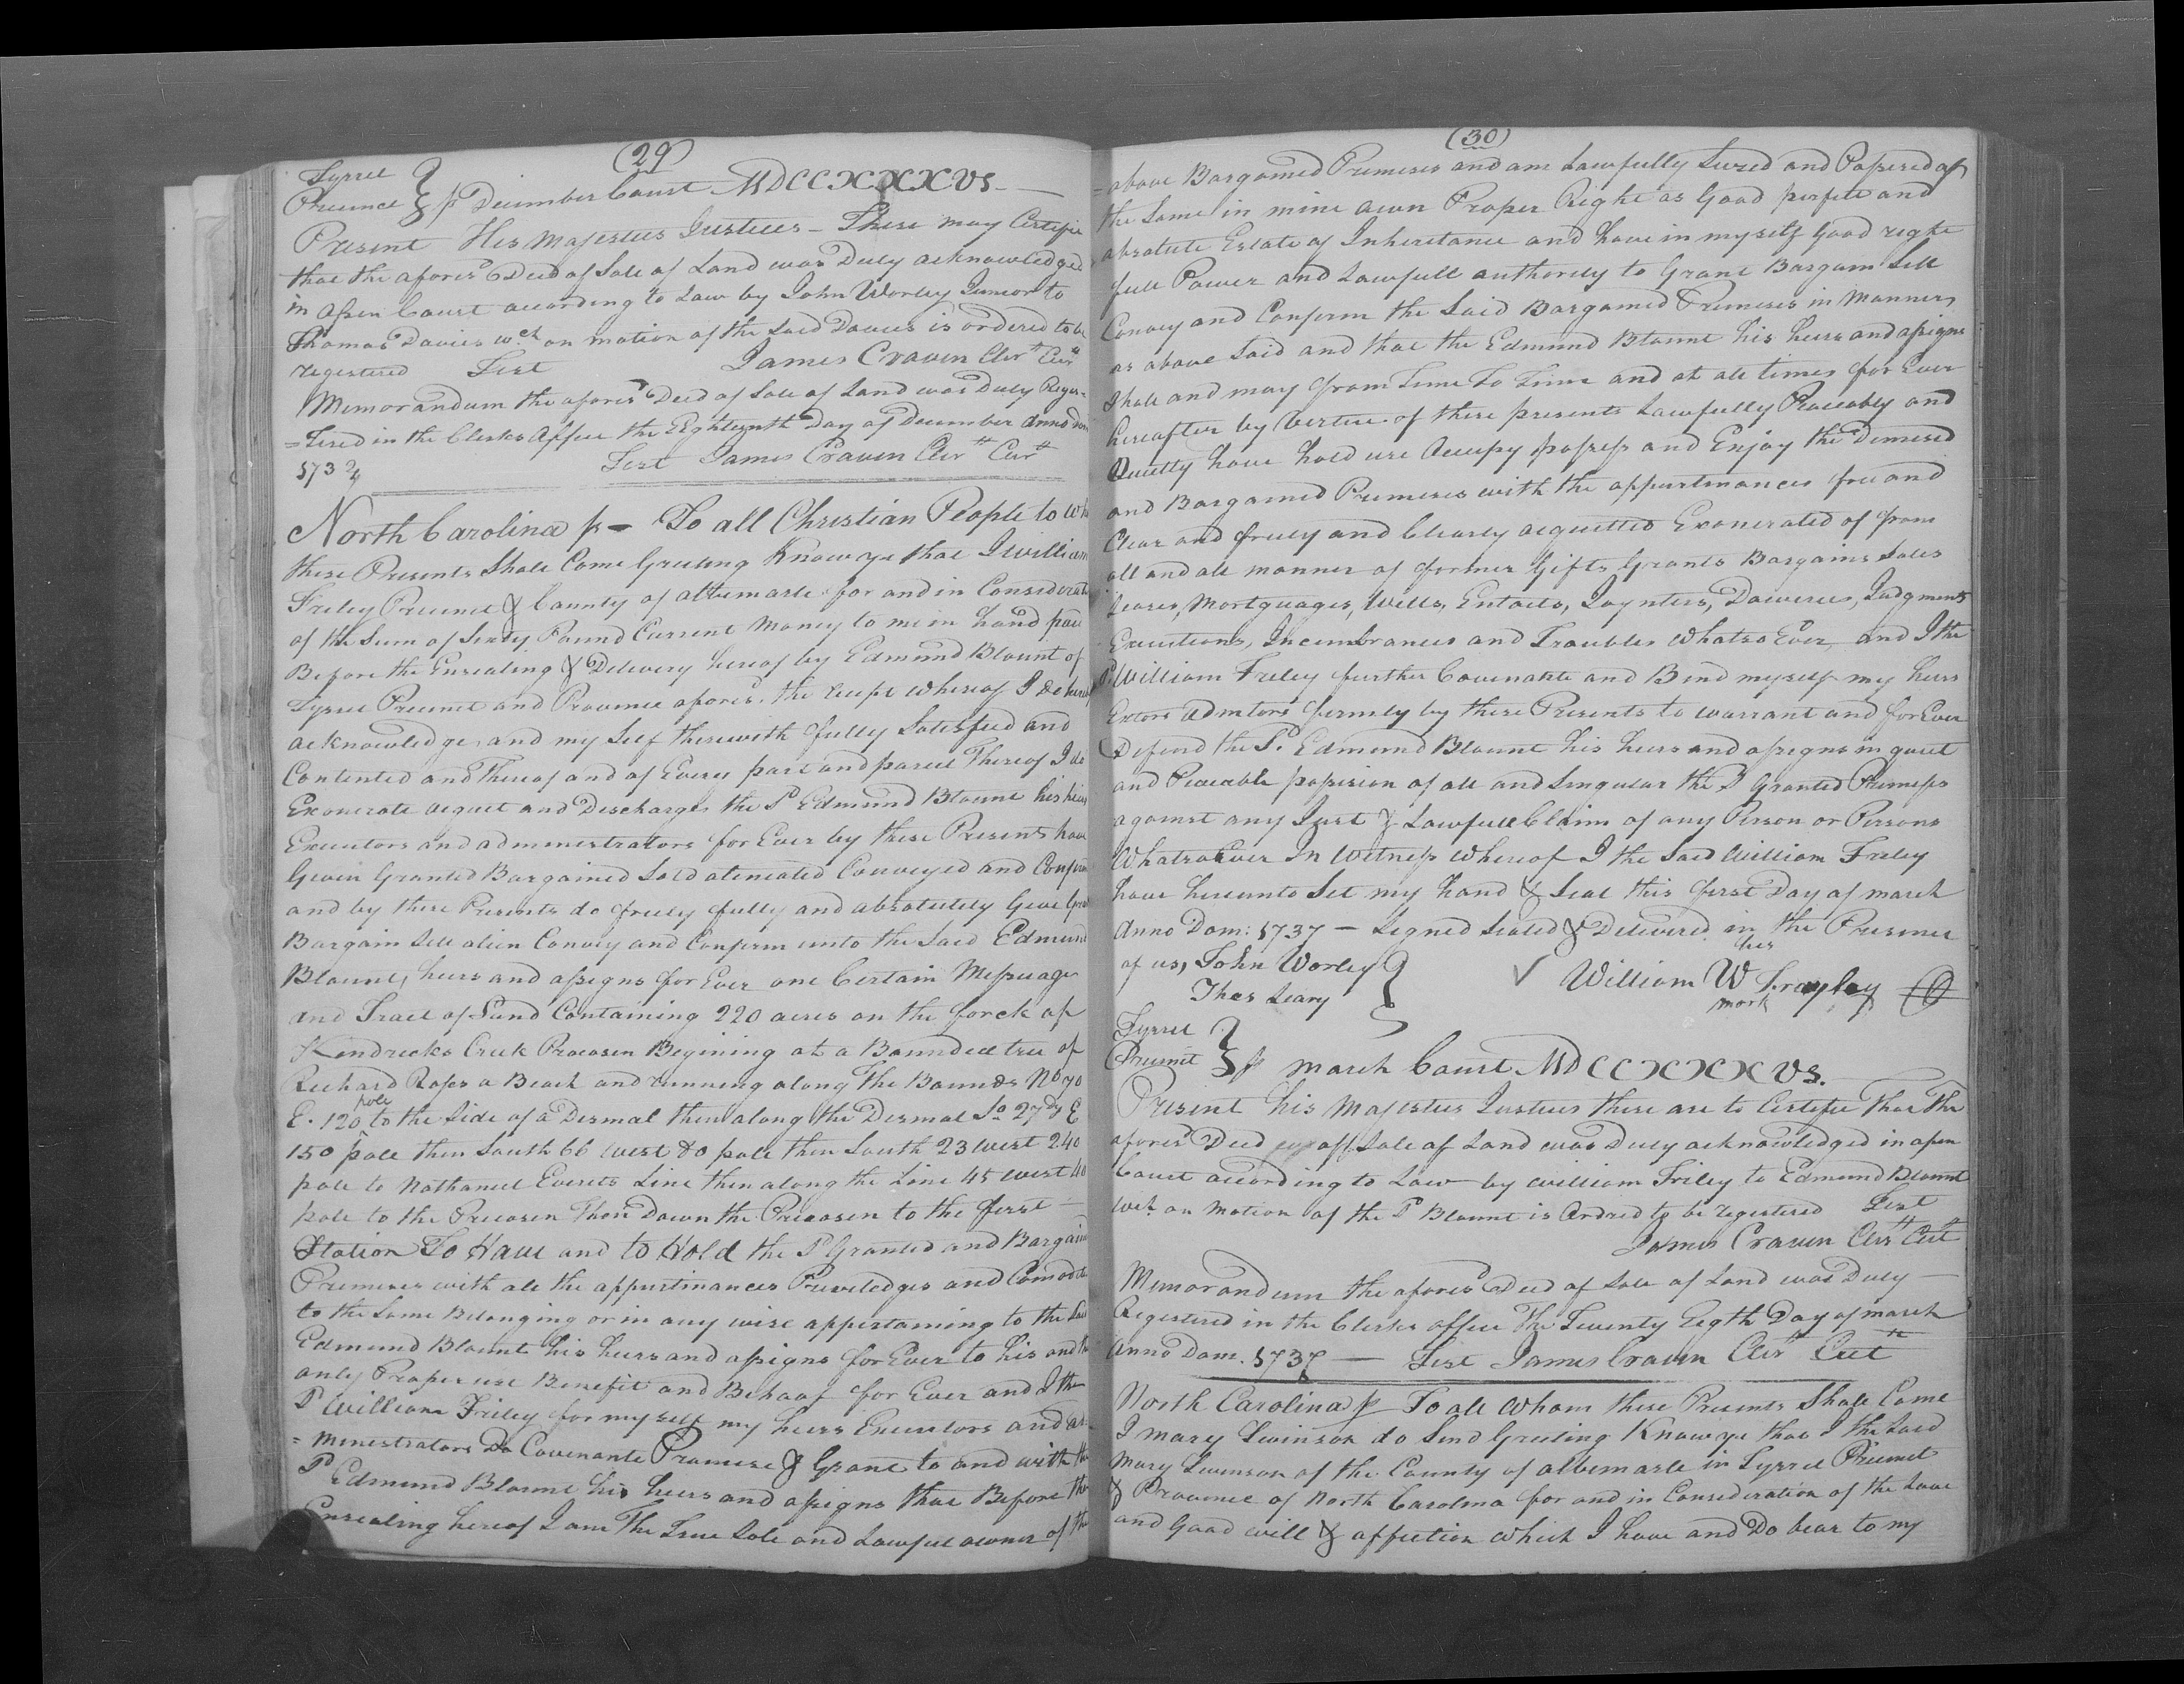 (29)
Tyrrel
Precinct } ss December Court MDCCXXXVI.
Present His Majesties Justices - These may Certifie
that the afores.d Deed of Sale of Land was Duly acknowledged
in open Court according to Law by John Worley Junior to
Thomas Davies w.ch on motion of the said Davies is ordered to be
registered Test James Craven Cler.k Cur.t
Memorandum the afores.d Deed of Sale of Land was Duly Regis-
=tered in the Clerks Office the Eighteenth Day of December anno dom
173
Test James Craven Cler.tt Cur.tt
North Carolina ss - To all Christian People to who
these Presents Shall Come Greeting Know ye that I William
Friley Precinct & County of Albemarle for and in Considerat
of the Sum of Sixty Pound Current Money to me in hand paid
Before the Ensealing & Delivery hereof by Edmund Blount of
Tyrrel Precinct and Province afores.d the receipt whereof I do hereby
acknowledge and my Self therewith fully Satisfied and
Contented and thereof and of Every part and parcel Thereof I do
Exonerate acquet and Discharge the S.d Edmund Blount his heirs
Executors and administrators for Ever by these Presents have
Given Granted Bargained Sold alienated Conveyed and Confirm
and by these Presents do freely fully and absolutely Give Grant
Bargain Sell alien Convey and Confirm unto the Said Edmund
Blount, heirs and assigns for Ever one Certain Messuage
and Tract of Land Containing 220 acres on the forck of
Kendricks Creek Procosen Begining at a Bounded tree of
Richard Roses a Beach and running along the Bounds No 70
E. 120 pole to the Side of a Desmal then along the Desmal So 27 dg E
150 pole then South 66 West 80 pole then South 23 West 240
pole to Nathaniel Everets Line then along the Line 45 West 40
pole to the Precosen Then Down the Precosen to the first -
Station To Have and to Hold the S.d Granted and Bargain
Premises with all the appurtinances Priviledges and Comodit
to the Same Belonging or in any wise appertaining to the Said
Edmund Blount his heirs and assigns for Ever to his and the
only Proper use Benefit and Behoof for Ever and I the
S.d William Friley for my self my heirs Executors and ad-
=ministrators Do Covenante Promise & Grant to and with the
S.d Edmund Blount his heirs and assigns that Before the
Ensealing hereof I am The True Sole and Lawful owner of the
(30)
=above Bargained Premises and am Lawfully Seized and Possesed of
the Same in mine own Proper Right as Good perfete and
absolute Estate of Inheritance and have in myself Good right
full Power and Lawfull authority to Grant Bargain Sell
Convey and Confirm the Said Bargained Premises in Manner
as above Said and that the Edmund Blount his heirs and assigns
Shall and may from Time To Time and at all times for Ever
hereafter by Vertue of these presents Lawfully Peaceably and
Quietly have hold use Occupy possess and Enjoy the Demised
and Bargained Premises with the appurtinances free and
Clear and freely and Clearly acquitted Exonerated of from
all and all manner of former Gifts Grants Bargains Sales
Leases, Mortguages, Wills, Entails, Joynters, Doweries, Judgments
Executions, Incumbrances and Troubles Whatso Ever, and I the
S.d William Friley further Covenante and Bind myself my heirs
Exctors Admtors firmly by these Presents to warrant and for Ever
Defend the S.d Edmund Blount his heirs and assigns in quiet
and Peaceable possesion of all and Singular the S.d Granted Premises
against any Just & Lawfull Claim of any Person or Persons
Whatsoever In Witness whereof I the Said William Friley
have hereunto Set my hand & Seal this first Day of March
Anno Dom: 1737 - Signed Sealed & Delivered in the Presence
of us, John Worley } William W Frayley
his
mark
Thos Leary
Tyrrel
Precinct } ss March Court MDCCXXXVI.
Present his Majesties Justices these are to Certifie That The
afores.d Deed of Sale of Land was Duly acknowledged in open
Court according to Law by William Friley to Edmund Blount
wch. on Motion of the S.d Blount is Ordred to be registered Test
James Craven Cler.tt Cur.tt
Memorandum the afores.d Deed of Sale of Land was Duly -
Registered in the Clerks office The Twenty Eigth Day of March
Anno Dom. 1737 - Test James Craven Cler.tt Curt
North Carolina ss To all Whom these Presents Shall Come
I Mary Swinson do Send Greeting Know ye that I the Said
Mary Swinson of the County of Albemarle in Tyrrel Precinct
& Province of North Carolina for and in Consideration of the Love
and Good will & affection which I have and Do bear to my